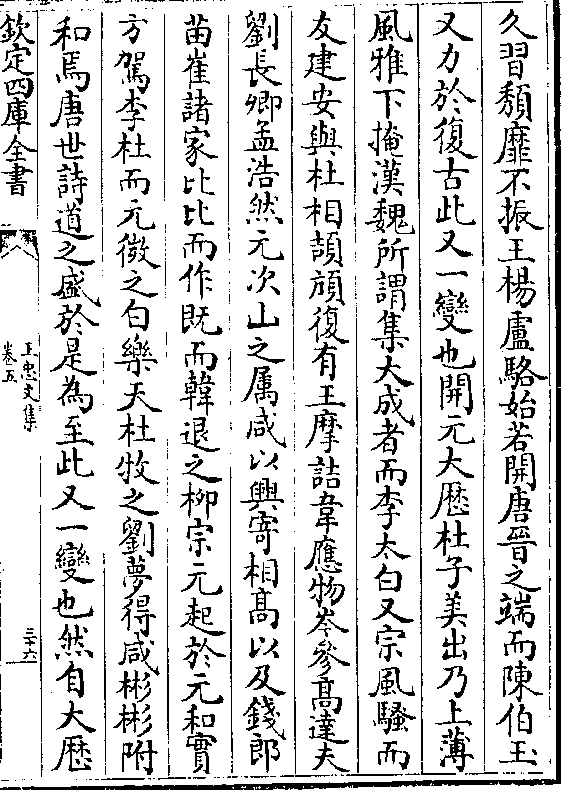 久習頽靡不振王楊盧駱始若開唐晉之端而陳伯玉
又力於復古此又一變也開元大厯杜子美出乃上薄
風雅下掩漢魏所謂集大成者而李太白又宗風騷而
友建安與杜相頡頏復有王摩詰韋應物岑參高達夫
劉長卿孟浩然元次山之属咸以興寄相髙以及錢郎
苗崔諸家比比而作既而韓退之栁宗元起於元和實
方駕李杜而元微之白樂天杜牧之劉夢得咸彬彬附
和焉唐世詩道之盛於是為至此又一變也然自大厯
欽定四庫全書
王忠文集
卷五
三十六